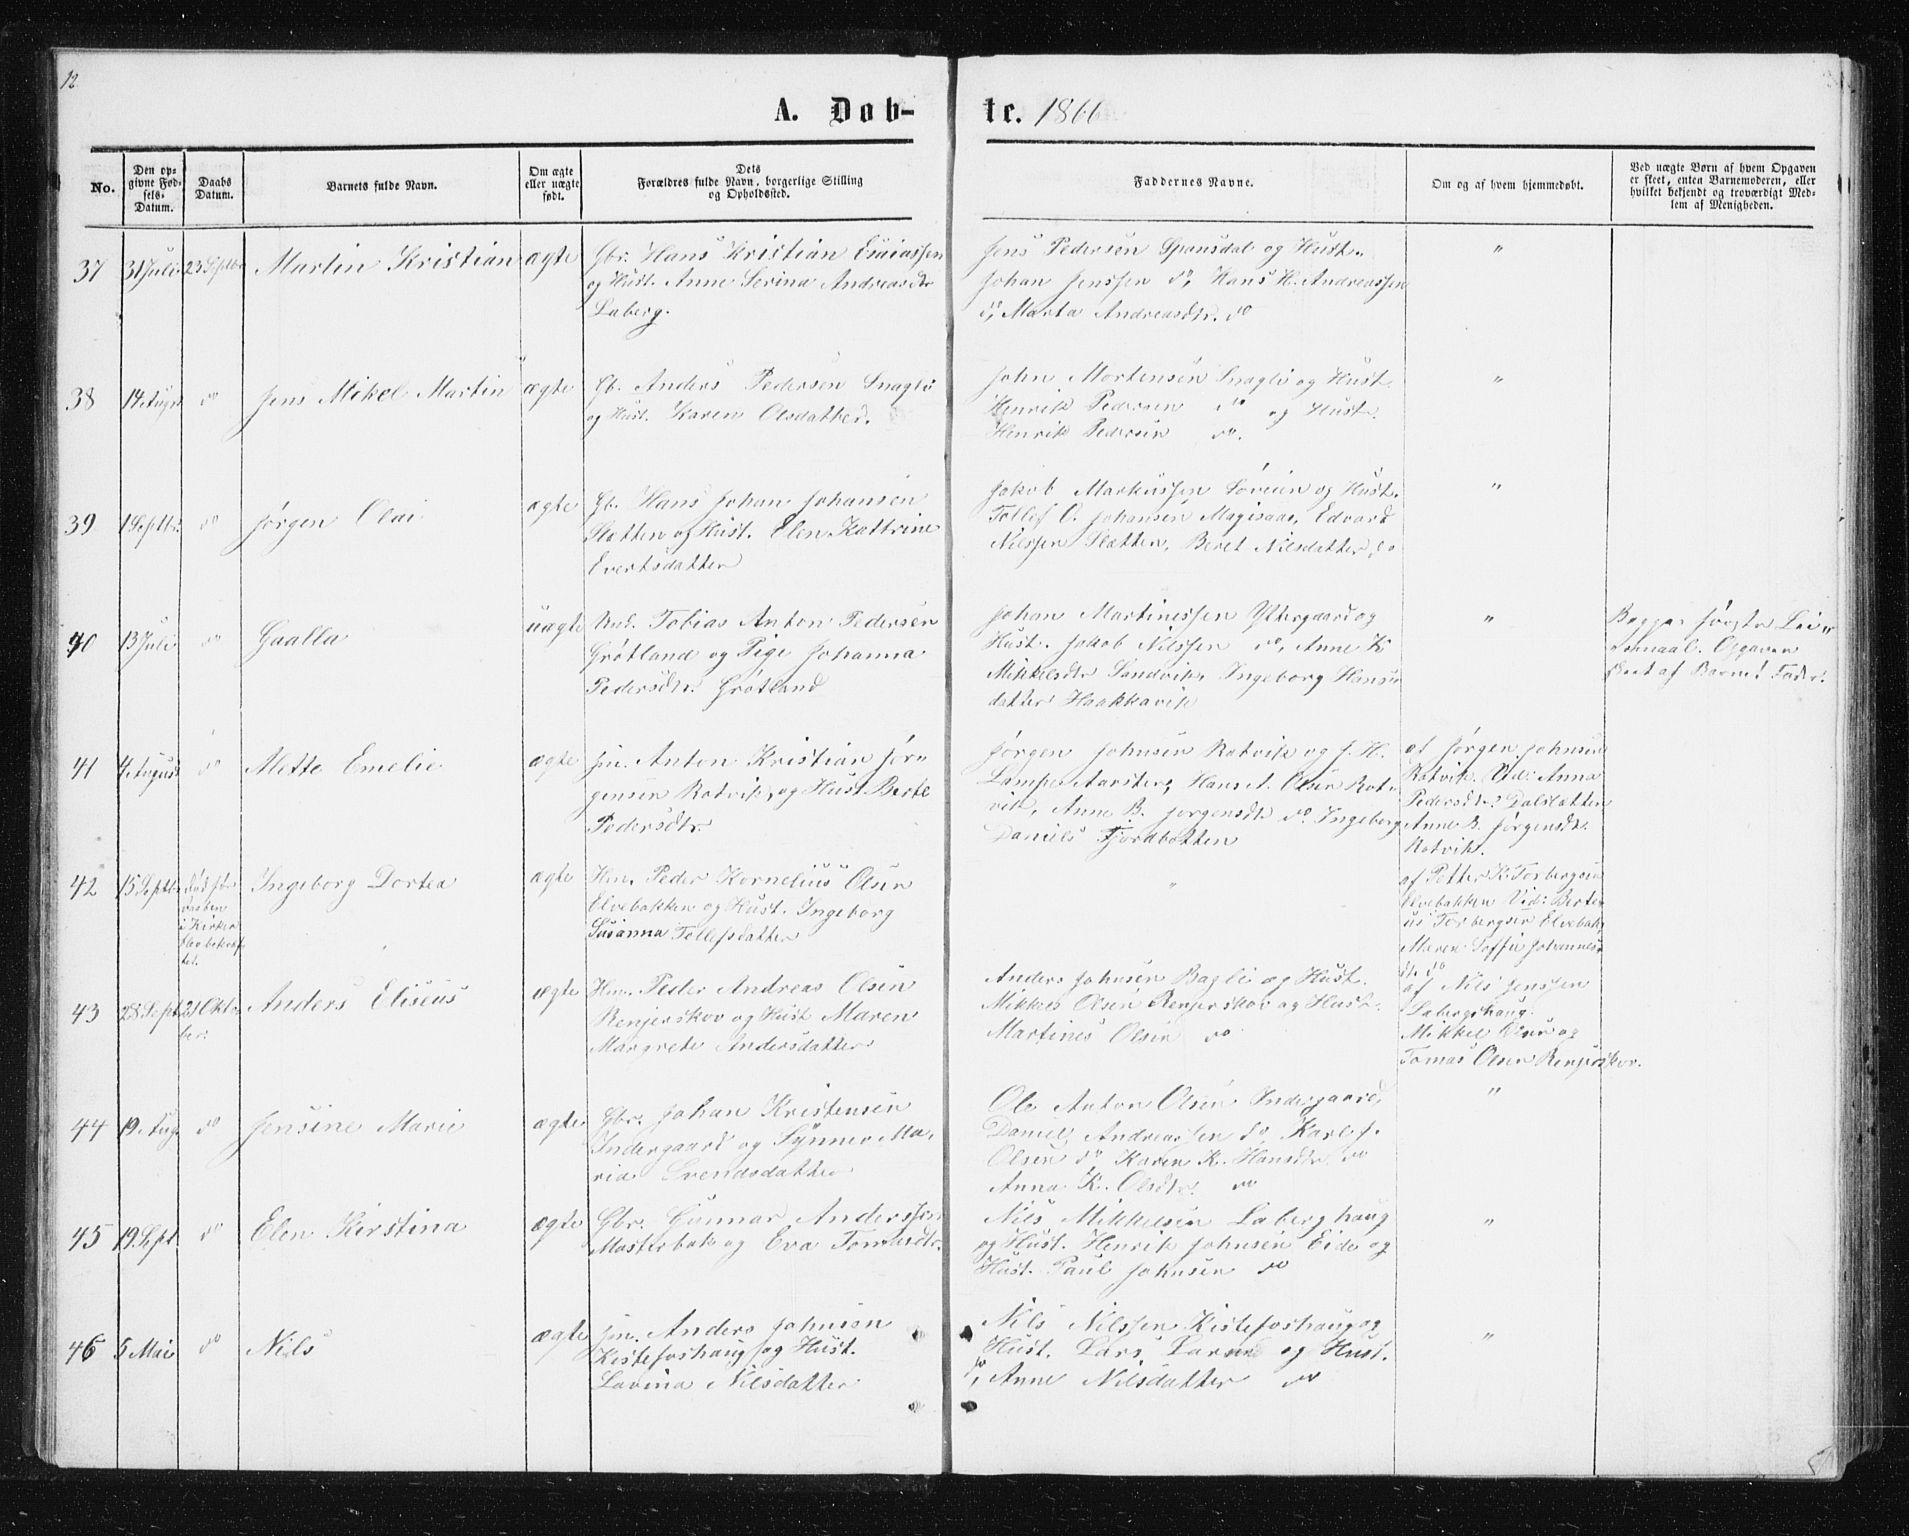 12
A. Døb-
te. 1866
No.
Den op-
givne Fød-
sels-
Datum.
Daabs
Datum.
Barnets fulde Navn.
Om ægte
eller uægte
født.
Dets
Forældres fulde Navn, borgerlige Stilling
og Opholdssted.
Faddernes Navne.
Om og af hvem hjemmedøbt.
Ved uægte Børn af hvem Opgaven
er skeet, enten Barnemoderen, eller
hvilket bekjendt og troværdigt Med-
lem af Menigheden.
37 31 Juli 23 Septbr Martin Kristian ægte
Gbr. Hans Kristian Esaiassen
og Hust. Anne Serina Andreasdtr
Laberg.
Jens Pedersen Spansdal og Hust.
Johan Jenssen do, Hans H. Andreassen
do, Marta Andreasdtr. do
"
38 14 Augs do Jens Mikel Martin ægte
Gb. Anders Pedersen Snagli
og Hust. Karen Olsdatter.
John Mortensen Snagli og Hust.
Henrik Pedersen do og Hust.
Henrik Pedersen do.
"
39 1 Septbr. do Jørgen Olai ægte
Gb. Hans Johan Johansen
Slætten og Hust. Elen Kattrine
Evertsdatter
Jakob Markussen Løveien og Hust.
Tollef O. Johansen Magisaas, Edvard
Nilssen Slætten, Beret Nilsdatter do
"
40 13 Juli do Gaalla uægte
Und. Tobias Anton Pedersen
Grøtland og Pige Johanna
Pedersdtr. Grøtland
Johan Martinessen Yttergaard og
Hust. Jakob Nilssen do, Anne K
Mikkelsdtr Sandvik, Ingeborg Hans-
datter Haakkavik
"
Begges første Lei-
ermaal. Opgaven
skeet af Barnets Fader.
41 4 August do Mette Emelie ægte
Jn. Anton Kristian Jør-
gensen Rotvik, og Hust Berte
Pedersdtr.
Jørgen Johnsen Rotvik og J. H.
Lampe Aarstein, Hans A. Olsen Rot-
vik, Anne B. Jørgensdtr do Ingeborg
Daniels Fjordbotten
af Jørgen Johnsen
Rotvik. Vid: Anna
Pedersdtr. Dalslætten
Anne B. Jørgensdtr.
Rotvik.
42 15 Septbr
Død før
Daaben
i Kirken
blev bekræf-
tet.
Ingeborg Dortea ægte
Hm. Peder Kornelius Olsen
Elvebakken og Hust. Ingeborg
Susanna Tollefsdatter
"
af Petter K. Torbergsen
Elvebakken Vid: Berte-
us Torbergsen Elvebak,
Maren Soffie Johannes-
dtr. do
43 28 Sept 21 Okto-
ber. Anders Eliseus ægte
Hm. Peder Andreas Olsen
Renjerskov og Hust Maren
Margrete Andersdatter
Anders Johnsen Bagli og Hust.
Mikkel Olsen Renjerskov og Hust.
Martines Olsen do
af Nils Jenssen
Labergshaug.
Mikkel Olsen og
Tomas Olsen Renjerskov.
44 19 Aug. do Jensine Marie ægte
Gbr. Johan Kristensen
Indergaard og Synnev Ma-
ria Svendsdatter
Ole Anton Olsen Indergaard,
Daniel Andreassen do, Karl J.
Olsen do, Karen K. Hansdtr. do
Anna K. Olsdtr. do
"
45 19 Sept do Elen Kirstina ægte
Gbr. Gunnar Anderssen
Mosterbak og Eva Tomasdtr.
Nils Mikkelsen Laberghaug
og Hust. Henrik Johnsen Eide og
Hust. Paul Johnsen do
"
46 5 Mai do Nils ægte
Jn. Anders Johnsen
Kistefoshaug og Hust.
Lovina Nilsdatter
Nils Nilssen Kistefoshaug og
Hust. Lars Larsen og Hust.
do, Anne Nilsdatter do
"